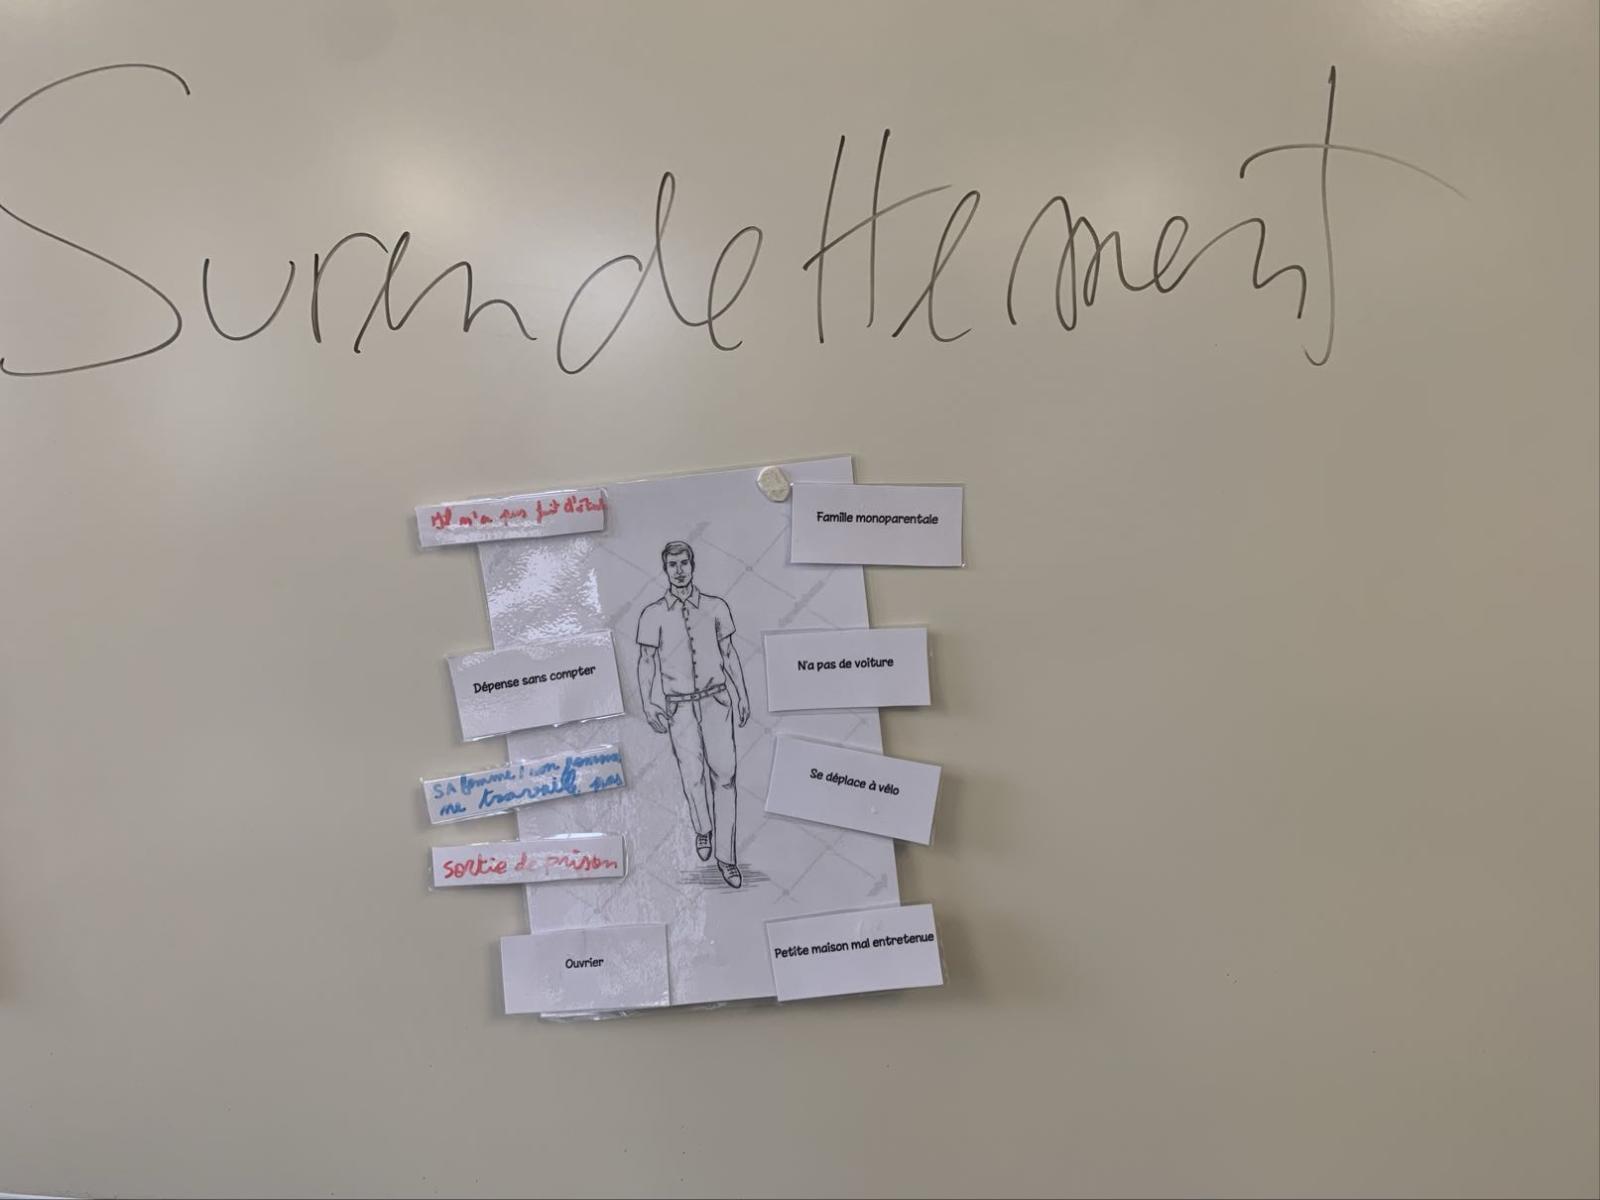 Surendettement
Il n'a pas fait d'étud
Famille monoparentale
Dépense sans compter
N'a pas de voiture
SA femme
ne travaille pas
Se déplace à vélo
sortie de prison
Ouvrier
Petite maison mal entretenue